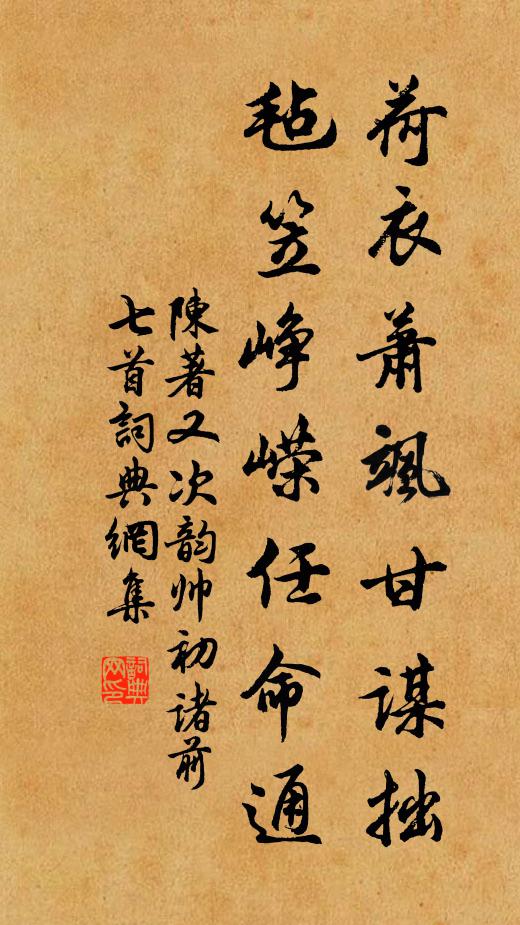 荷衣蕭颯甘謀拙
毡笠崢嶸任命通
陳著又次韵帅初诸前
七首詞典網集
詞典网印